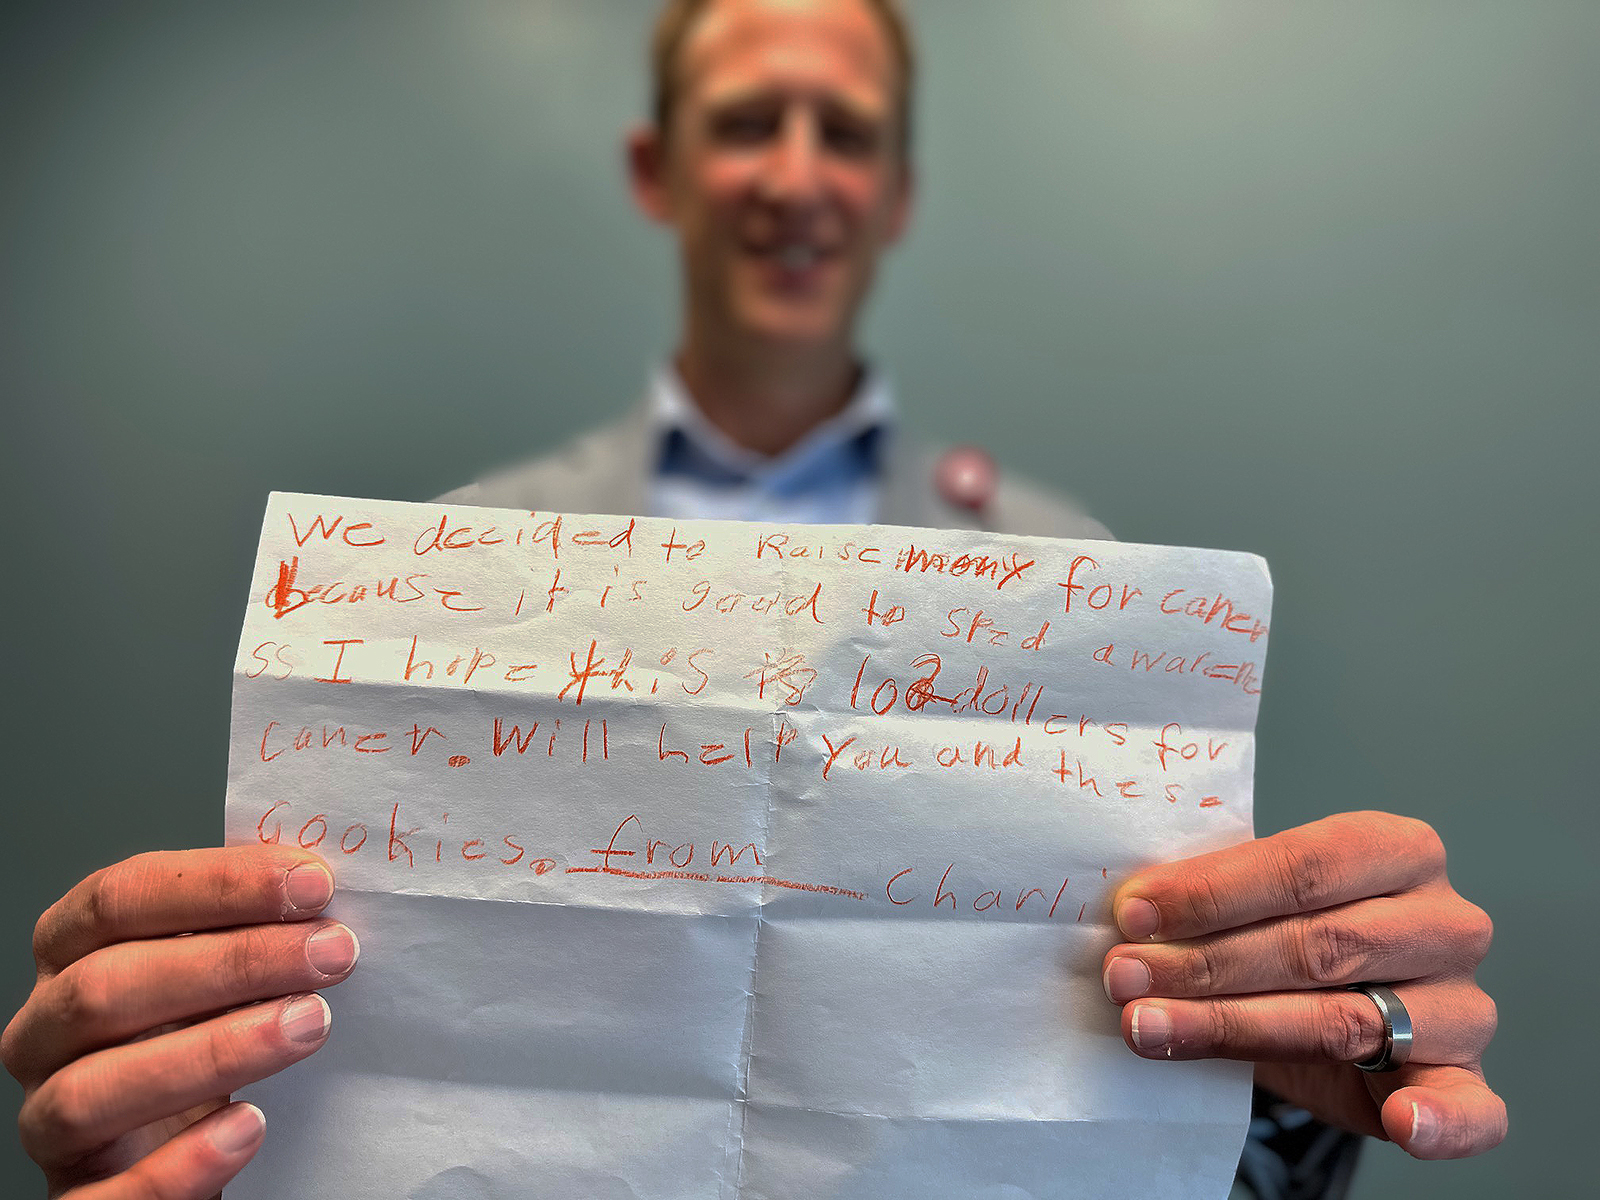 We decided to Raise mony for caner
because it is good to sped awarene
ss I hope this is 102 dollers for
caner. Will help you and these
cookies. from Charli